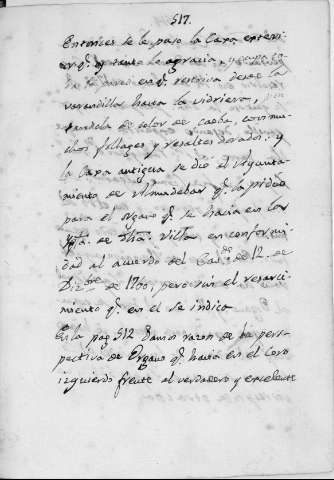 517.
Entonces se le puso la Caxa exteri-
or q.e tanto le agracia,
se puso en q.e restriva desde la
varandilla hasta la vidriera,
tandola de color de caoba, con mu-
chos follages y resaltes dorados: y
la Caxa antigua se dió al Ayunta-
miento de Almudebar q.e la pidió
para el organo q.e se hacia en la
Ygl.a de dha. Villa en conformi-
dad al acuerdo del Cab.do de 12. de
Diz.bre de 1760; pero sin el resarci-
miento q.e en el se indica
En la pag. 512 damos razon de la pers-
pectiva de Organo q.e havia en el Coro
izquierdo frente al verdadero y excelente